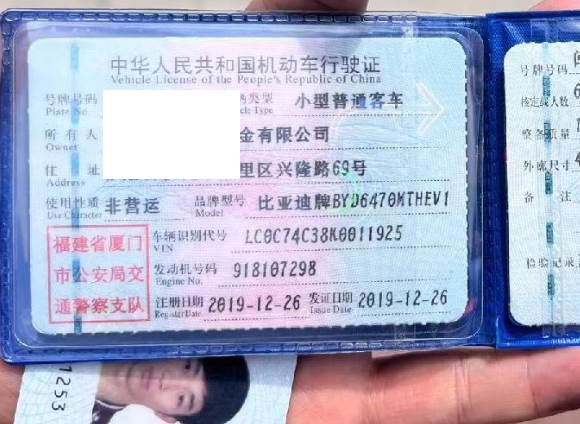 中华人民共和国机动车行驶证
Vehicle License of the People's Republic of China
号牌号码 类型 小型普通客车
Plate No. Type
所有人 金有限公司
Owner
住址 里区兴隆路69号
Address
使用性质 非营运 品牌型号 比亚迪牌BYD6470MTHEV1
Use Character Model
福建省厦门
市公安局交
通警察支队
车辆识别代号 LC0C74C38K0011925
VIN
发动机号码 918107298
Engine No.
注册日期 2019-12-26 发证日期 2019-12-26
Register Date Issue Date
号牌号码
核定载人数
整备质量
外廓尺寸
备注
检验记录
1253